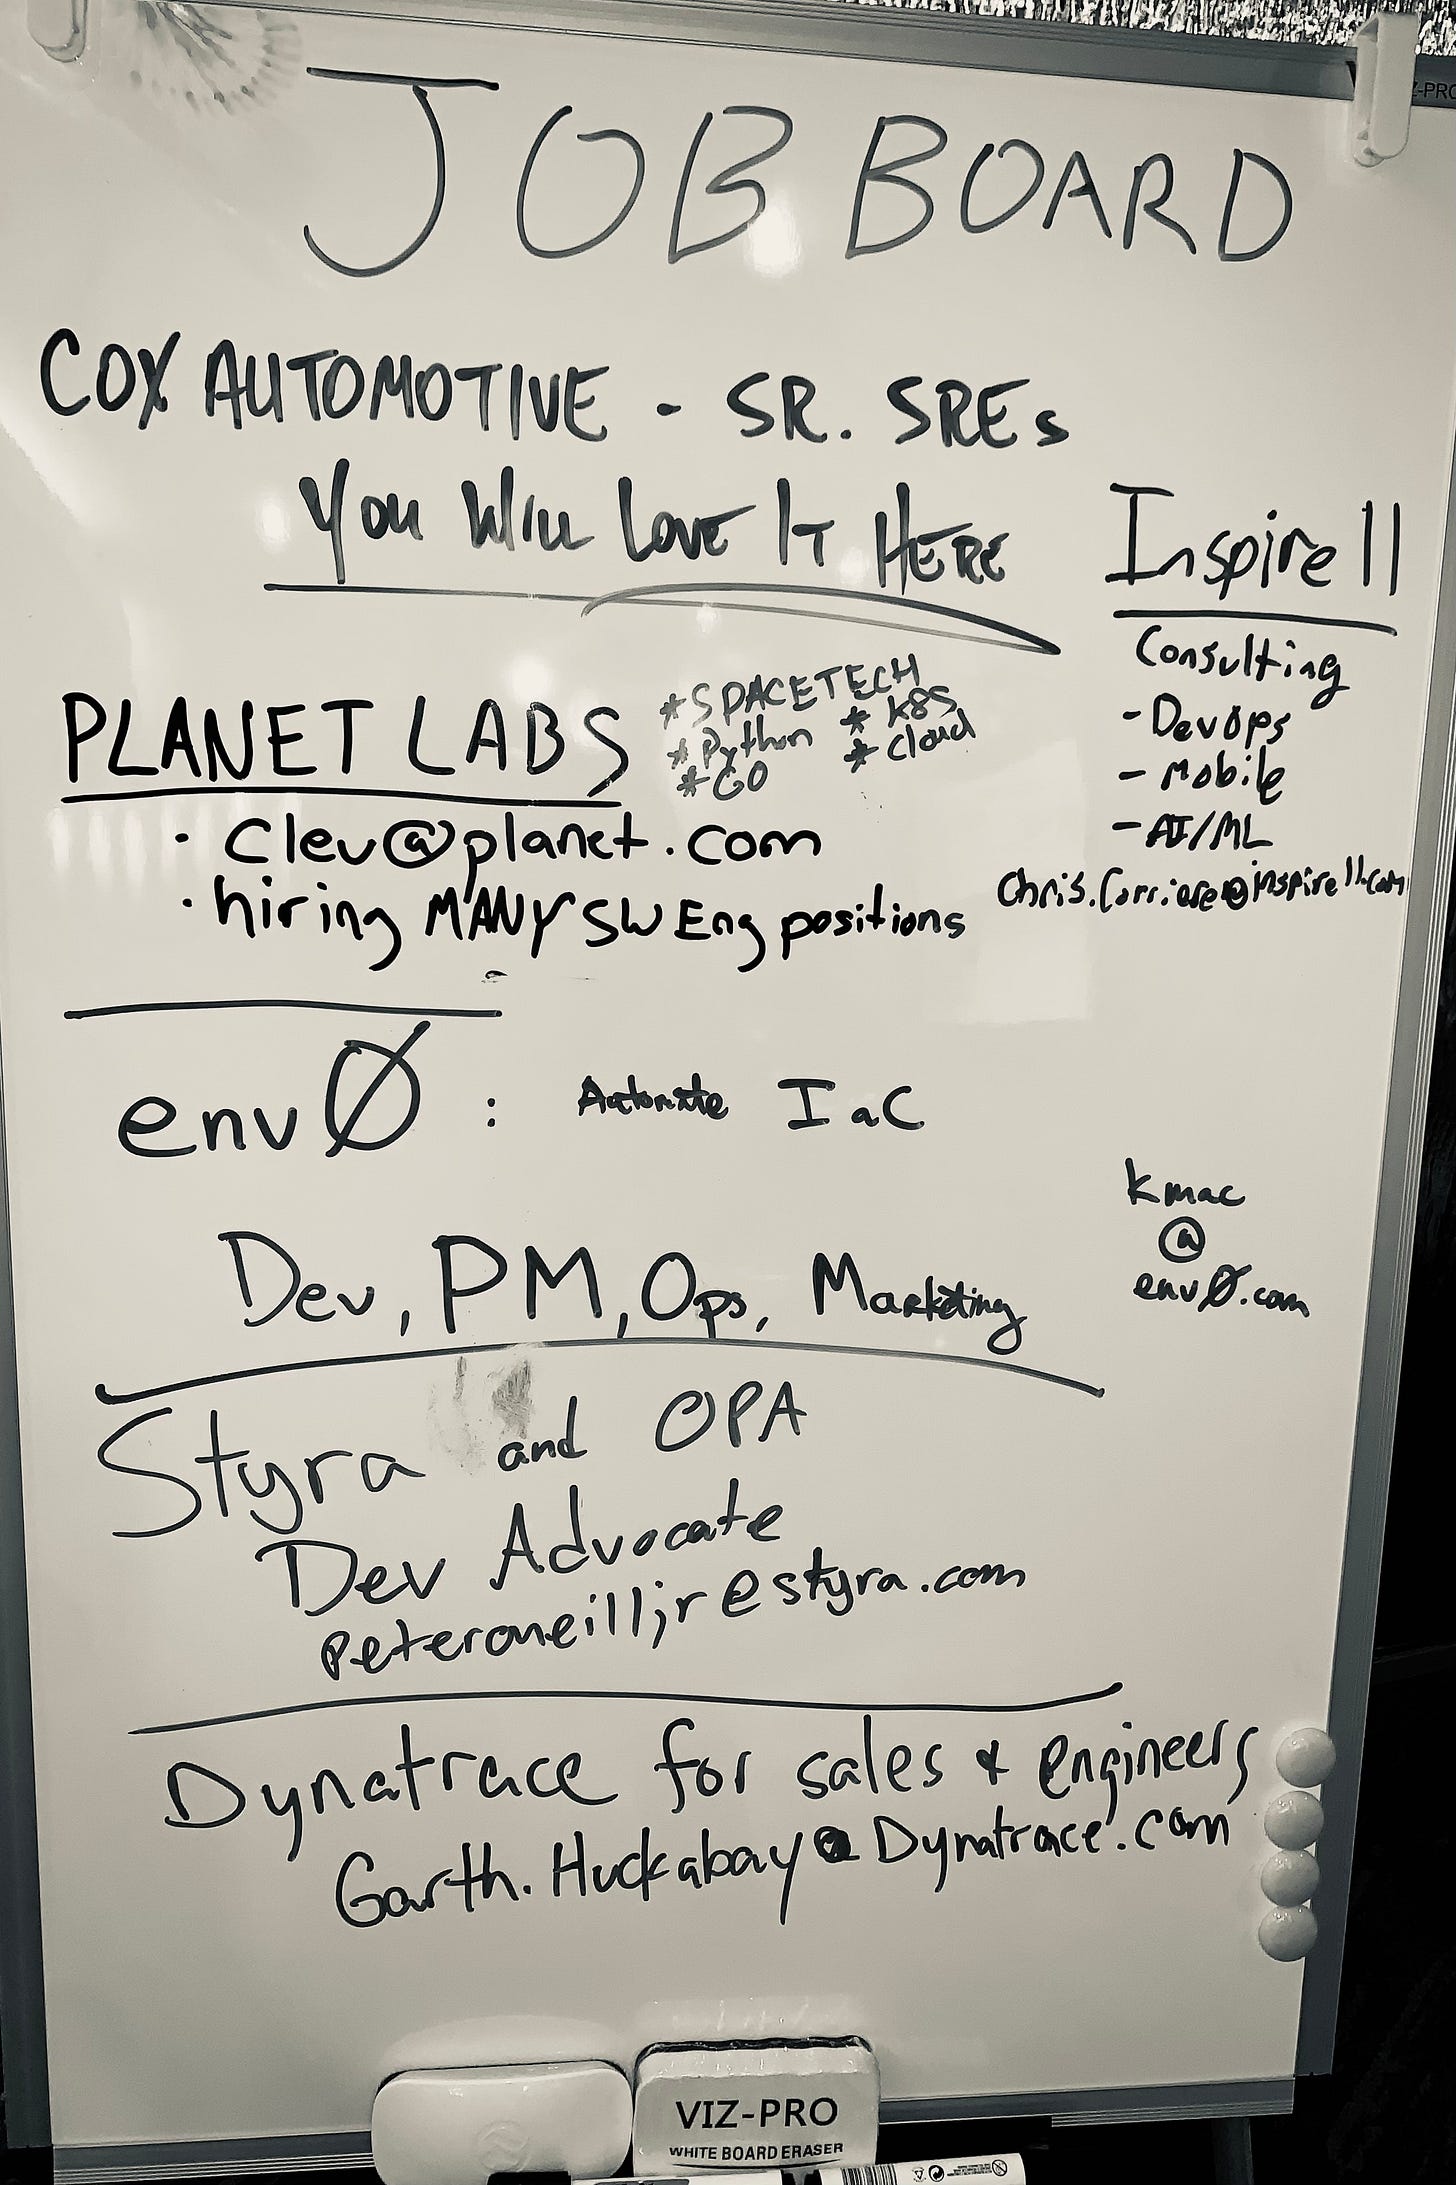 JOB BOARD
COX AUTOMOTIVE - SR. SREs
You Will Love It Here
Inspire11
Consulting
- DevOps
- Mobile
- AI/ML
Chris.Corriere@inspire11.com
PLANET LABS
* SPACETECH
* Python * K8S
* GO * Cloud
· Clev@planet.com
· hiring MANY SW Eng positions
envØ : Automate IaC
Dev, PM, Ops, Marketing
kmac
@
envØ.com
Styra and OPA
Dev Advocate
Peteroneilljr@styra.com
Dynatrace for sales & engineers
Garth.Huckabay@Dynatrace.com
VIZ-PRO
WHITE BOARD ERASER